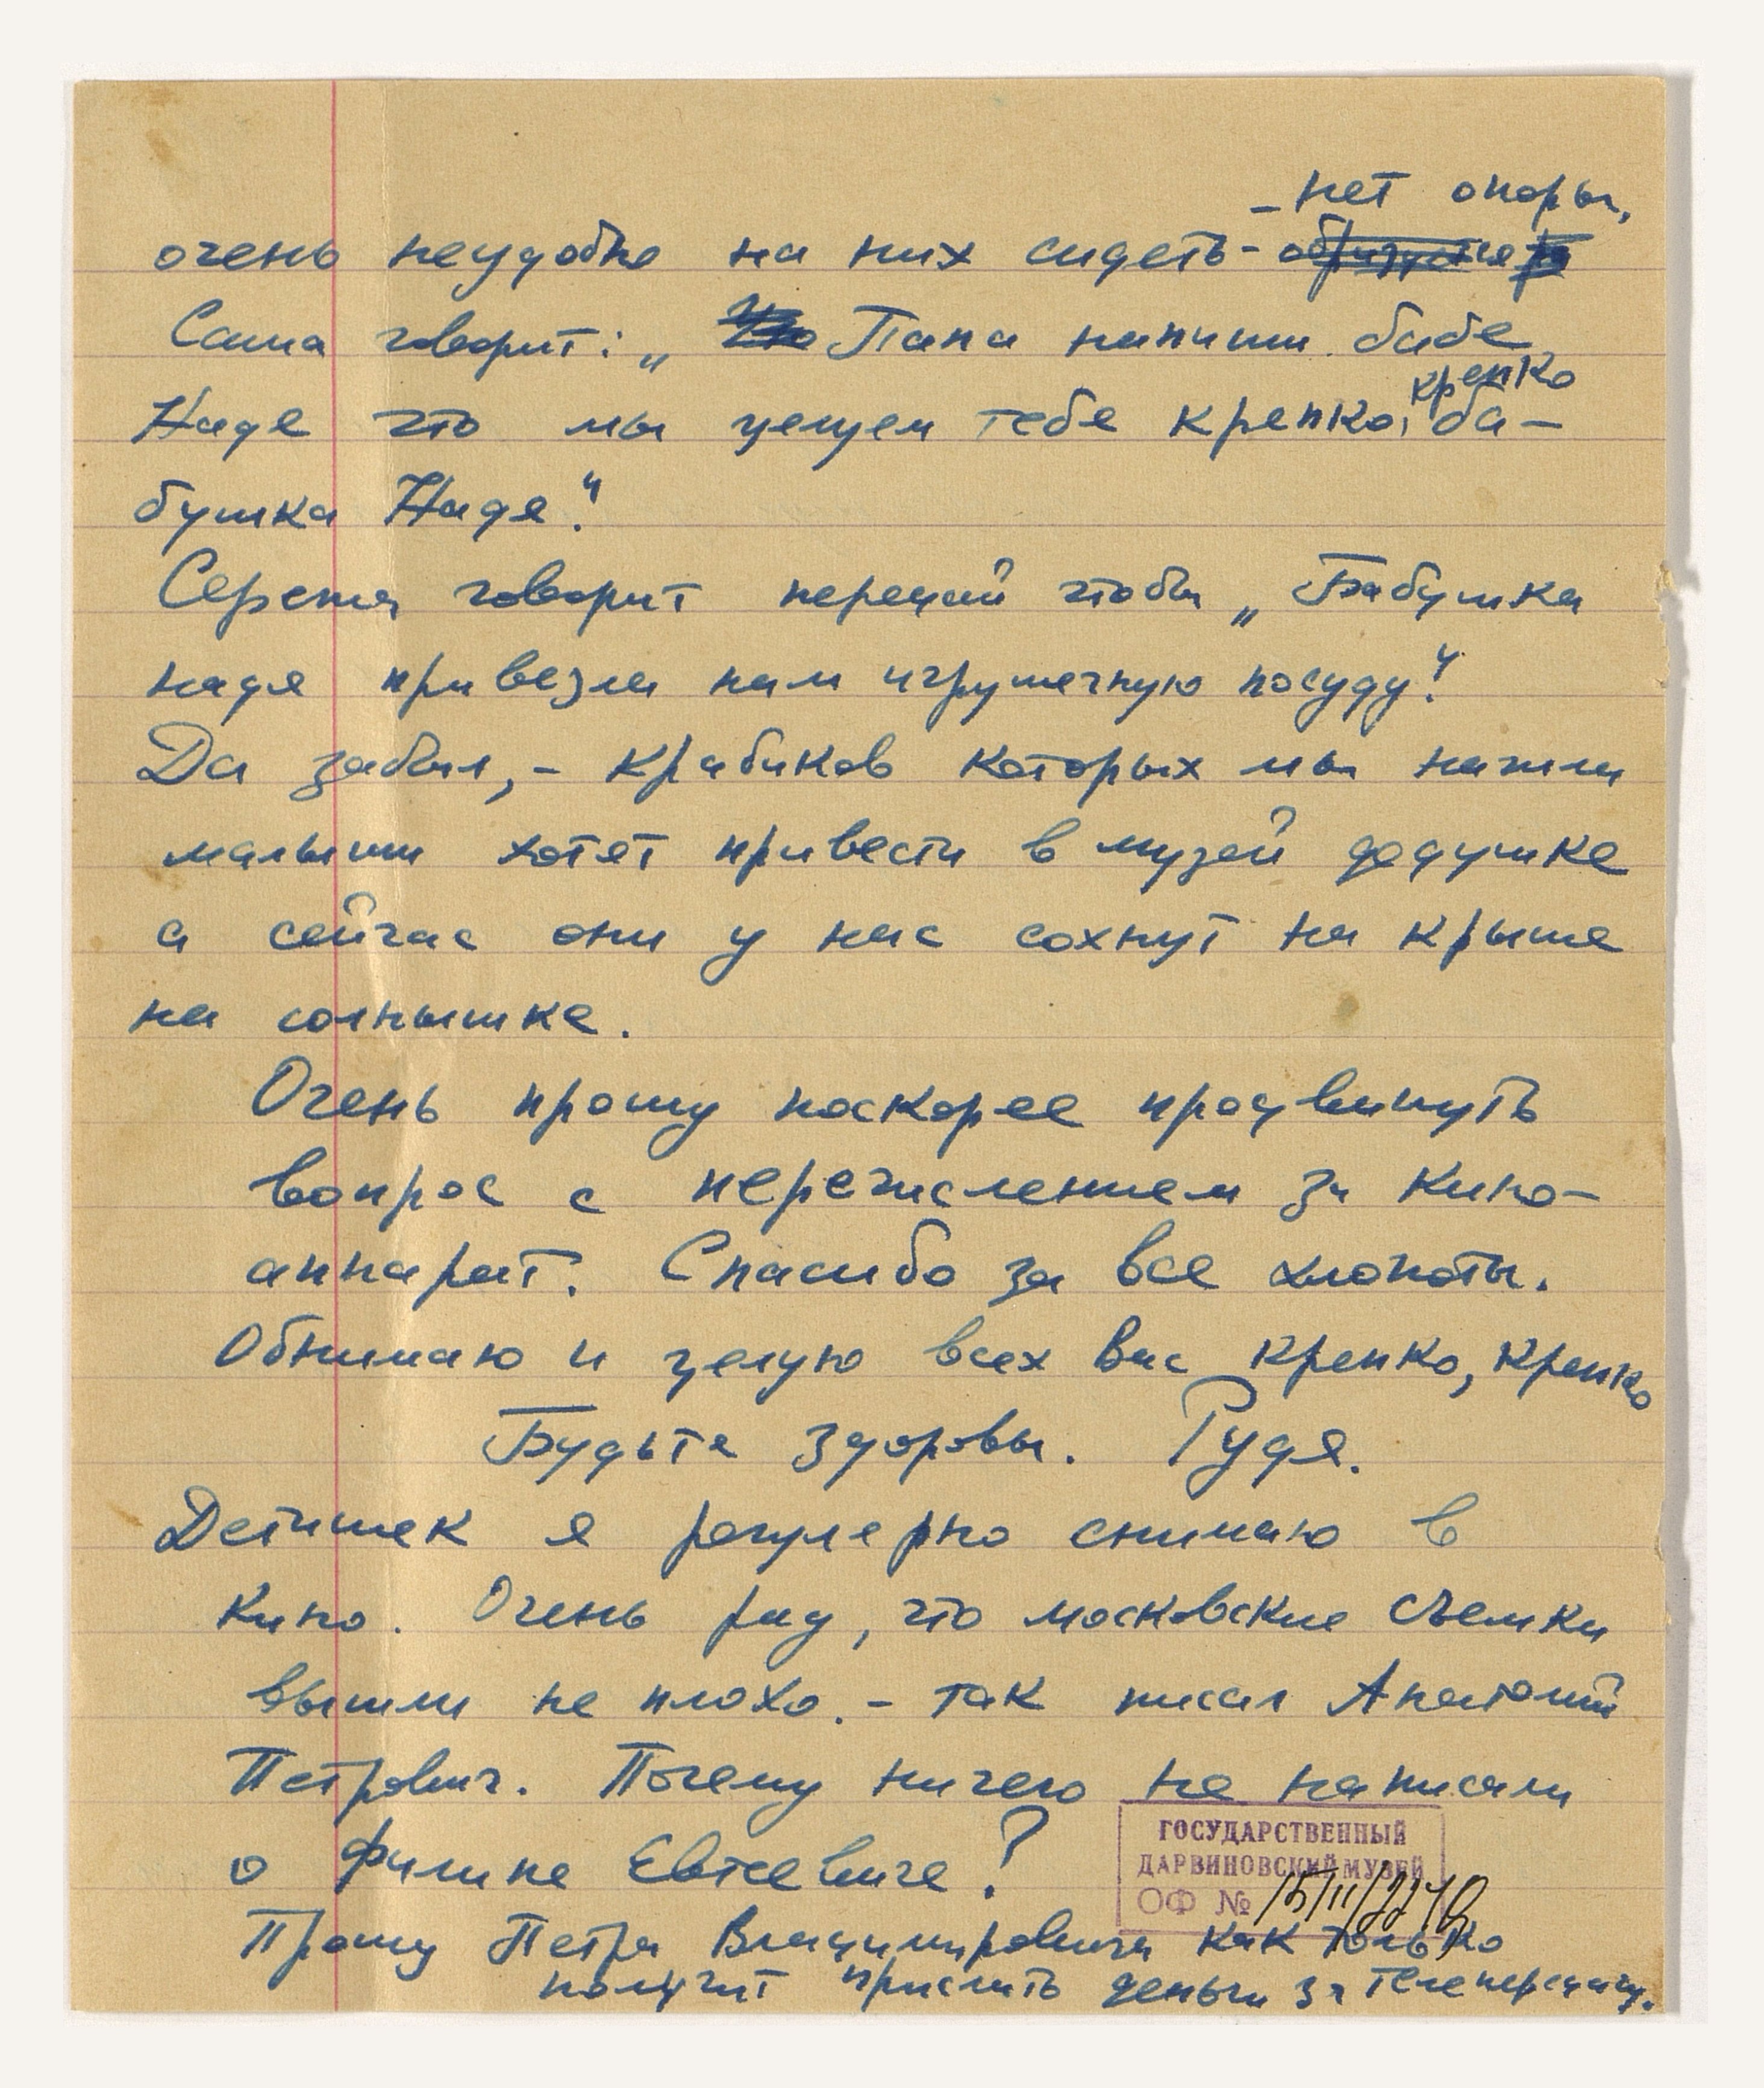 – нет опоры,
очень неудобно на них сидеть –
Саша говорит: „ Папа напиши бабе
крепко
Наде что мы целуем тебе крепко, ба–
бушка Надя“.
Сережа говорит передай чтобы „ Бабушка
надя привезла нам игрушечную посуду“.
Да забыл, – крабиков которых мы нашли
малыши хотят привести в музей дедушке
а сейчас они у нас сохнут на крыше
на солнышке.
Очень прошу поскорее продвинуть
вопрос с перечислением за кино–
аппарат. Спасибо за все хлопоты.
Обнимаю и целую всех вас крепко, крепко
Будьте здоровы. Рудя.
Детишек я регулярно снимаю в
кино. Очень рад, что московские съемки
вышли не плохо. – так писал Анатолий
Петрович. Почему ничего не написали
о Филипе Евтеевиче?
ГОСУДАРСТВЕННЫЙ
ДАРВИНОВСКИЙ МУЗЕЙ
ОФ №
Прошу Петра Владимировича как только
получит прислать деньги за телепередачу.